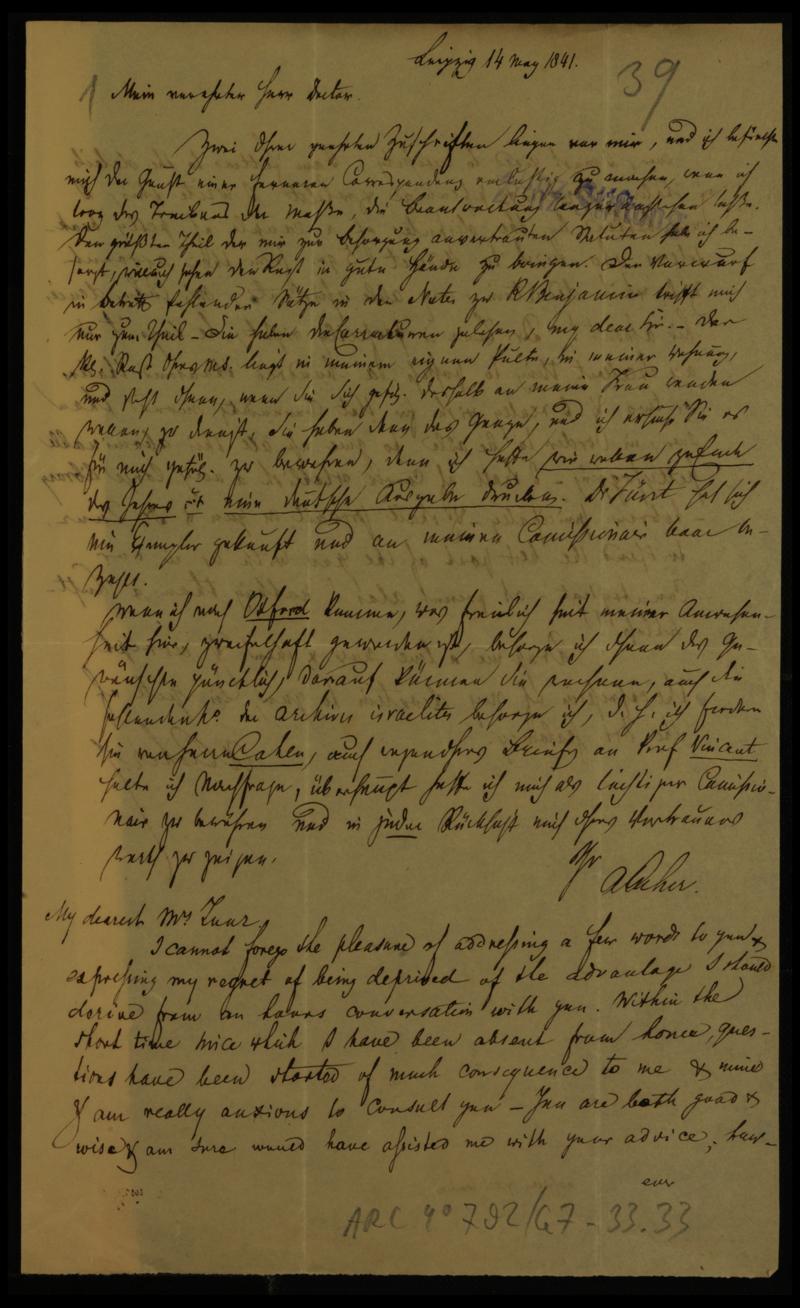 Leipzig 14 May 1841.
39
Mein verehrter Herr Doctor.
Zwei Ihrer geehrten Zuschriften liegen vor mir, und ich befürchte
mich der Gunst einer ferneren Correspondenz verlustig zu machen, wenn ich
trotz des Treibens der Messe, die Beantwortung länger
Den größten Theil der mir zur Besorgung anvertrauten habe ich be-
sorgt, den Rest in gute Hände zu bringen. Der Vorwurf
in betreff fehlender Sätze in den Noten zu R Benjamin trifft mich
nur zum Theil – Sie haben die Correcturen gelesen, my dear Sir. – Der
Rest Ihres Ms. liegt in meinem eignen Pulte, in meiner Wohnung,
und steht Ihnen, wenn Sie Sich gefäl. deshalb an meine Frau wenden
wollen, zu Dienst, Sie haben dann das Ganze, und ich ersuche Sie es
für mich gefäl. zu bewahren, denn ich wir wollen zu Ende
des Jahres eine deutsche Ausgabe drucken. Dr Fürst hat sich
ein Exemplar gekauft und an meinen Comissionair baar be-
zahlt.
Wenn ich nach Oxford komme, was freilich seit meiner Anwesen-
heit hier, zweifelhaft geworden ist, besorge ich Ihnen das Ge-
wünschte pünctlich, darauf können Sie rechnen, auch die
der archives israelites besorge ich, d. h. ich fordere
sie von Herrn Cahen, auch wegen Ihres Briefs an Prof Vincent
halte ich Nachfrage, überhaupt hoffe ich mich als tüchtiger Comissio-
nair zu bewähren und in jeder Rücksicht mich Ihres Vertrauens
werth zu zeigen.
Ihr
AAsher.
My dearest Mrs Zunz,
I cannot forego the pleasure of addressing a few words to you &
expressing my regret of being deprived of the advantage I should
derive from an hours conversation with you. Within the
short time since which I have been absent from home, ques-
tions have been started of much consequence to me & mine
& am really anxious to consult you – You are both good &
wise & am sure would have assisted me with your advice, how-
ever
ARC 4° 792/G7 - 33.33